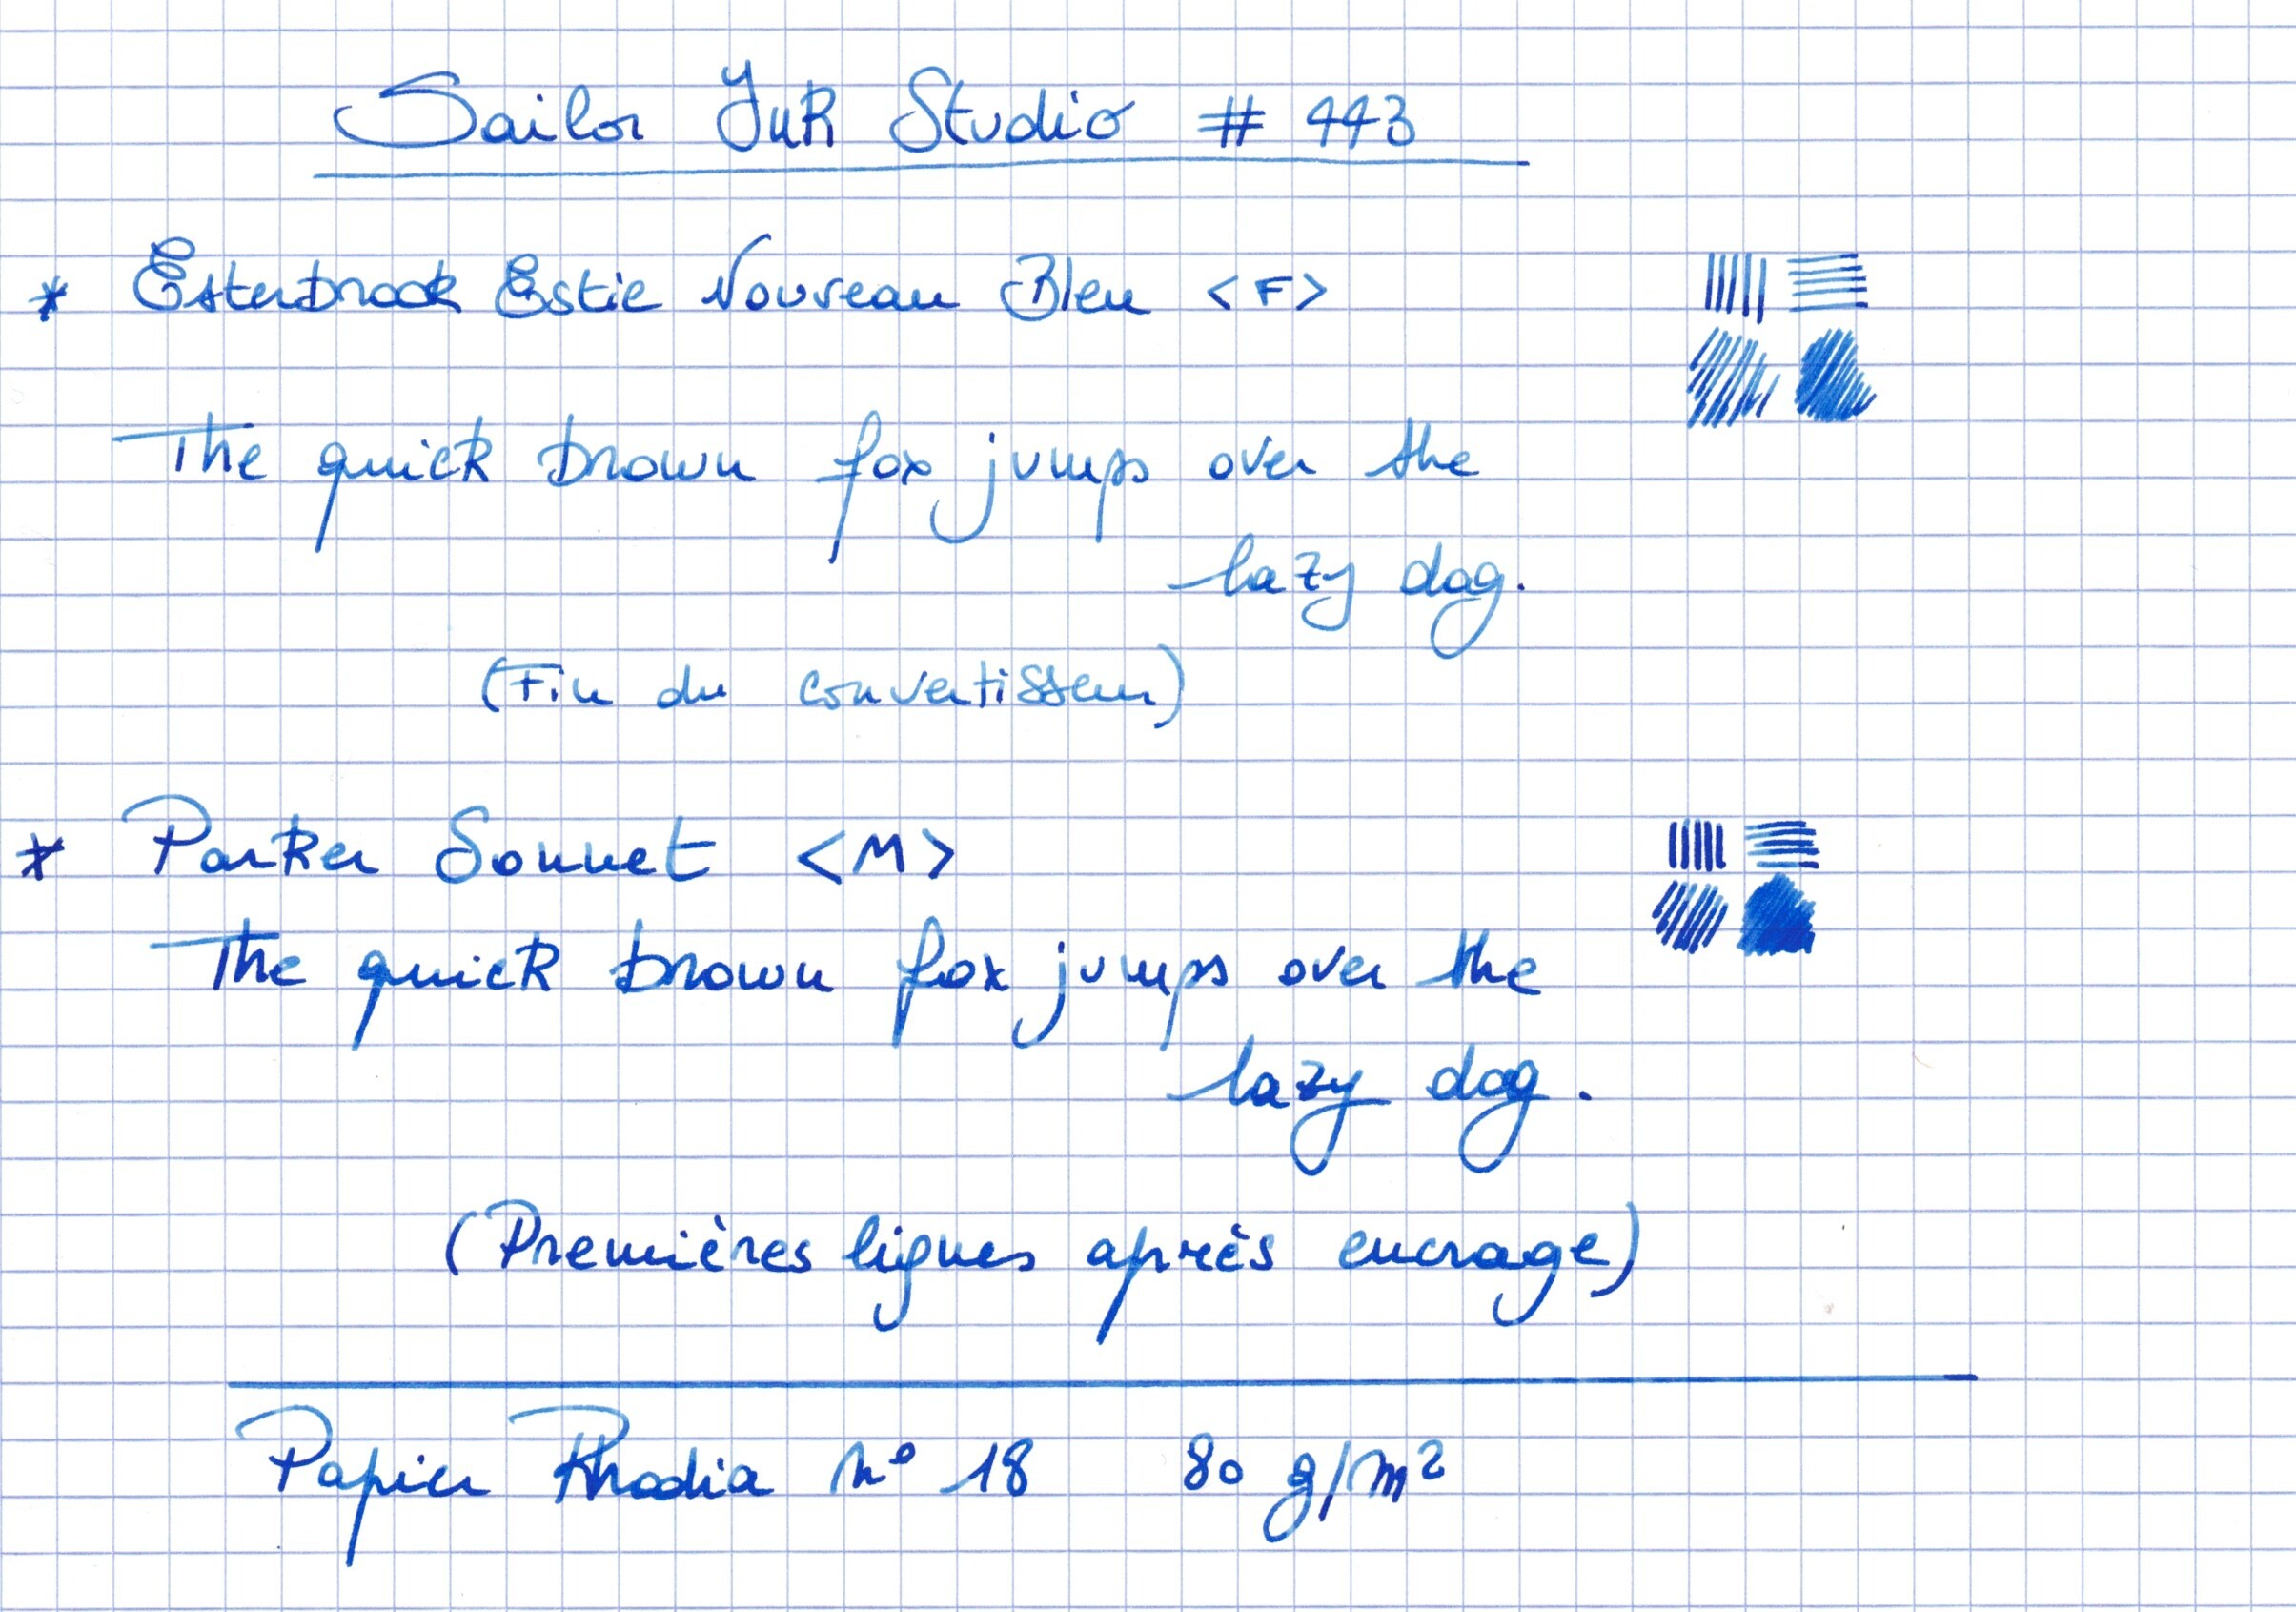 Sailor InK Studio # 443
* Esterbrook Estie Nouveau Bleu <F>
The quick brown fox jumps over the
lazy dog.
(Fin du convertisseur)
* Parker Sonnet <M>
The quick brown fox jumps over the
lazy dog.
(Premières lignes après encrage)
Papier Rhodia n° 18 80 g/m²